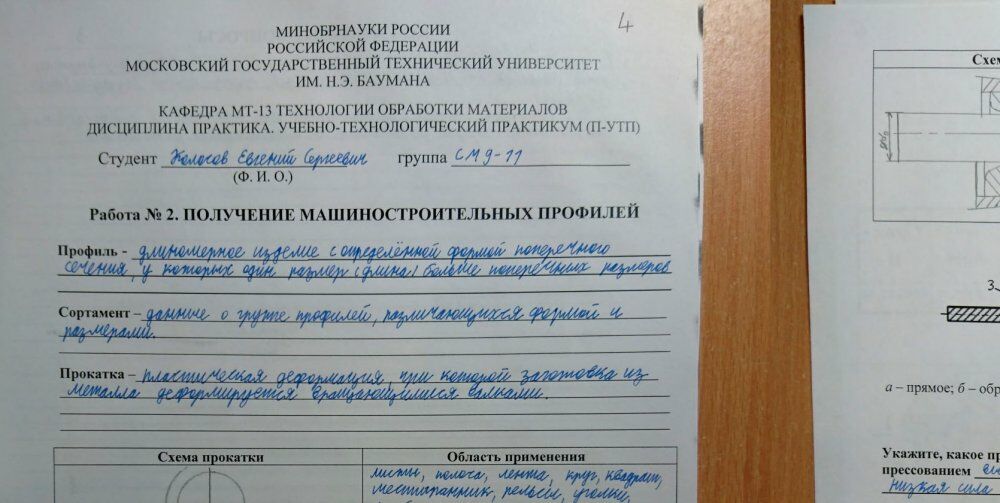 4
МИНОБРНАУКИ РОССИИ
РОССИЙСКОЙ ФЕДЕРАЦИИ
МОСКОВСКИЙ ГОСУДАРСТВЕННЫЙ ТЕХНИЧЕСКИЙ УНИВЕРСИТЕТ
ИМ. Н.Э. БАУМАНА
КАФЕДРА МТ-13 ТЕХНОЛОГИИ ОБРАБОТКИ МАТЕРИАЛОВ
ДИСЦИПЛИНА ПРАКТИКА. УЧЕБНО-ТЕХНОЛОГИЧЕСКИЙ ПРАКТИКУМ (П-УТП)
Студент Колосов Евгений Сергеевич группа СМ9-11
(Ф. И. О.)
Работа № 2. ПОЛУЧЕНИЕ МАШИНОСТРОИТЕЛЬНЫХ ПРОФИЛЕЙ
Профиль - длиномерное изделие с определённой формой поперечного
сечения, у которых один размер (длина) больше поперечных размеров
Сортамент – данные о группе профилей, различающихся формой и
размерами.
Прокатка – пластическая деформация, при которой заготовка из
металла деформируется вращающимися валками.
Схема прокатки
Область применения
листы, полоса, лента, круг, квадрат,
шестигранник, рельсы, уголки,
3
а – прямое; б – обр
Укажите, какое пр
прессованием
низкая сила